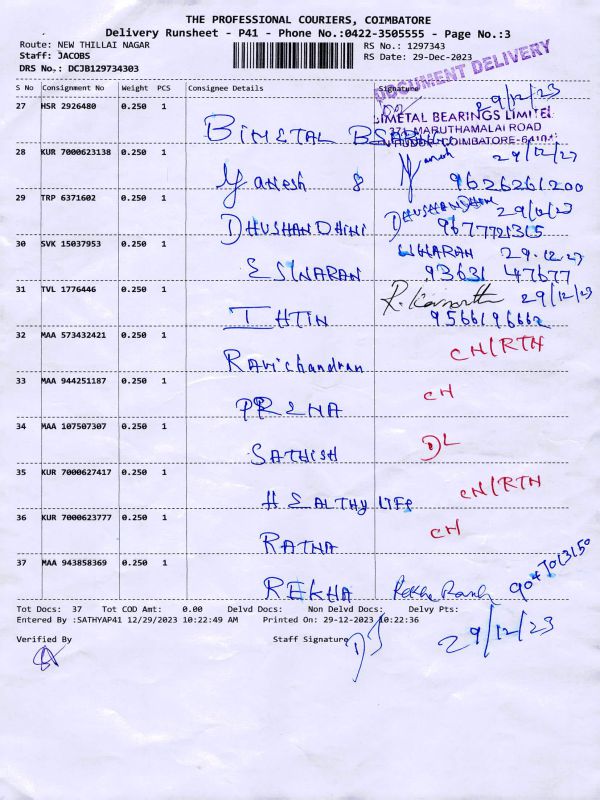 THE PROFESSIONAL COURIERS, COIMBATORE
Delivery Runsheet - P41 - Phone No.:0422-3505555 - Page No.:3
Route: NEW THILLAI NAGAR RS No.: 1297343
Staff: JACOBS RS Date: 29-Dec-2023
DRS No.: DCJB129734303
DOCUMENT DELIVERY
S No Consignment No Weight PCS Consignee Details Signature
27 HSR 2926480 0.250 1 29/12/23
BIMETAL BEARINGS LIMITED
MARUTHAMALAI ROAD
COIMBATORE
BIMETAL
28 KUR 7000623138 0.250 1 29/12/23
Yanesh & 9626261200
29 TRP 6371602 0.250 1 DHUSHANDHINI 29/12/23
DHUSHANDHINI 9677721315
30 SVK 15037953 0.250 1 29.12.23
ESWARAN 93631 47677
31 TVL 1776446 0.250 1 29/12/23
ITHTIN 9566196662
32 MAA 573432421 0.250 1 CH/RTN
Ravichandran
33 MAA 944251187 0.250 1 CH
PRENA
34 MAA 107507307 0.250 1 DL
SATHISH
35 KUR 7000627417 0.250 1 CH/RTN
HEALTHY LIFE
36 KUR 7000623777 0.250 1 CH
RATNA
37 MAA 943858369 0.250 1
REKHA
Tot Docs: 37 Tot COD Amt: 0.00 Delvd Docs: Non Delvd Docs: Delvy Pts:
Entered By :SATHYAP41 12/29/2023 10:22:49 AM Printed On: 29-12-2023 10:22:36
Verified By Staff Signature
29/12/23